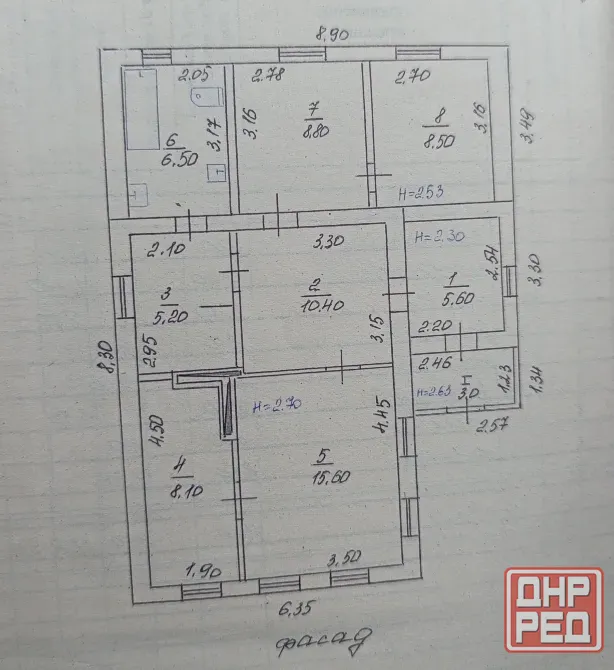 8,90
2,05
2,78
2,70
6
6,50
3,17
3,16
7
8,80
8
8,50
3,16
3,49
H=2.53
2.10
3,30
H=2,30
2.54
3,30
3
5,20
2
10.40
1
5.60
2.95
3,15
2.20
8,30
2.46
H=2.63
H
3,0
1,23
1,34
2.57
4,50
H=2.70
4.45
4
8.10
5
15.60
1,90
3,50
6,35
фасад
ДНР
РЕД